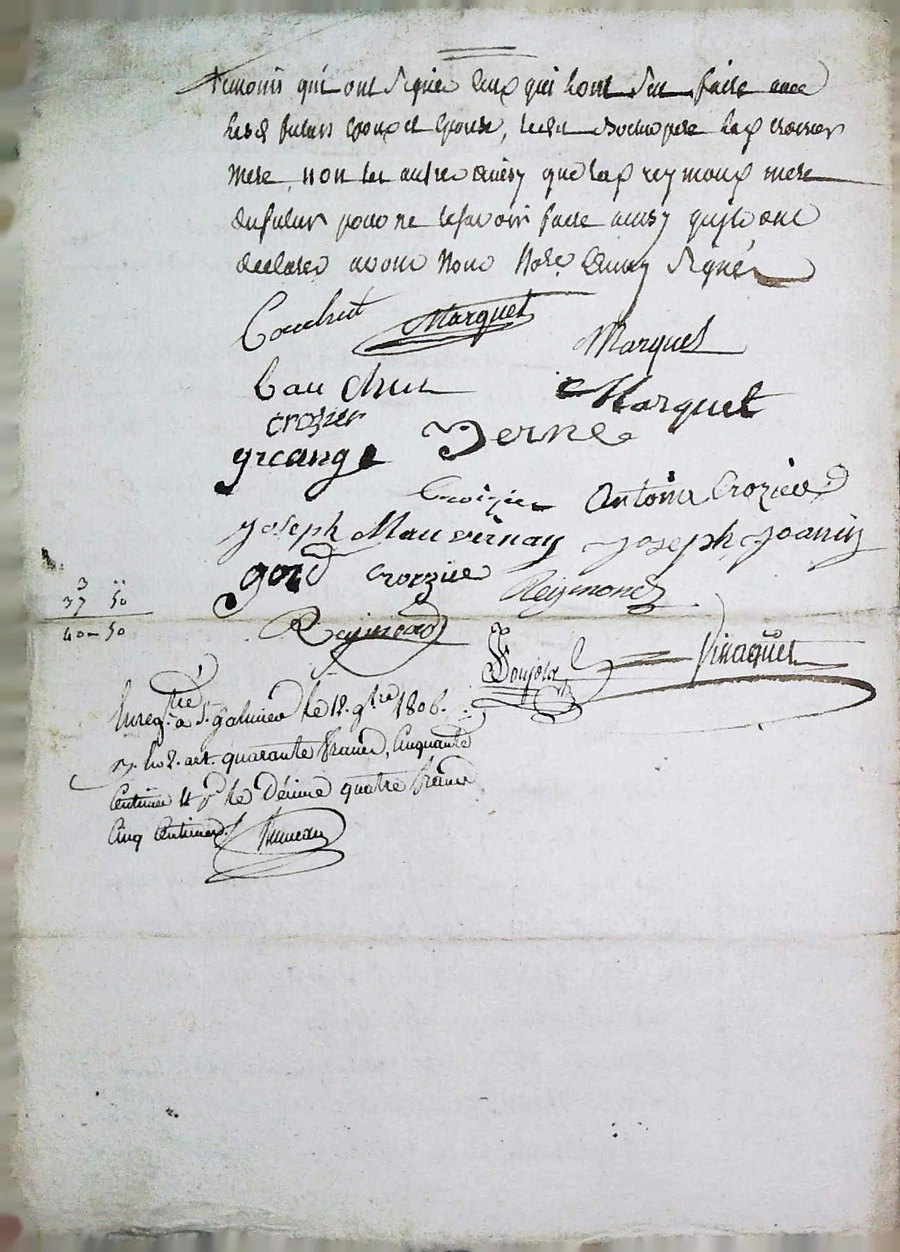 temoins qui ont signé ceux qui l'ont sçu faire avec
lesd. futurs epoux et epouse, led. pere lad. crozier
mere, non les autres ainsy que lad. reymond mere
du futur pour ne le savoir faire ainsy qu'ils ont
declaré avons nous Note signé
Couchut Marquet
Marquet
Cauchut Marquet
crozier
grcange verne
Croizier antoine Crozier
joseph Mauvernay joseph joanin
gord crorzier Reymond
3 "
37 50
40 - 50
Reymond
Pinaquet
Enregtré à St. galmier le 18. 9bre 1806.
quarante francs, Cinquante
Centimes le Décime quatre francs
Cinq Centimes